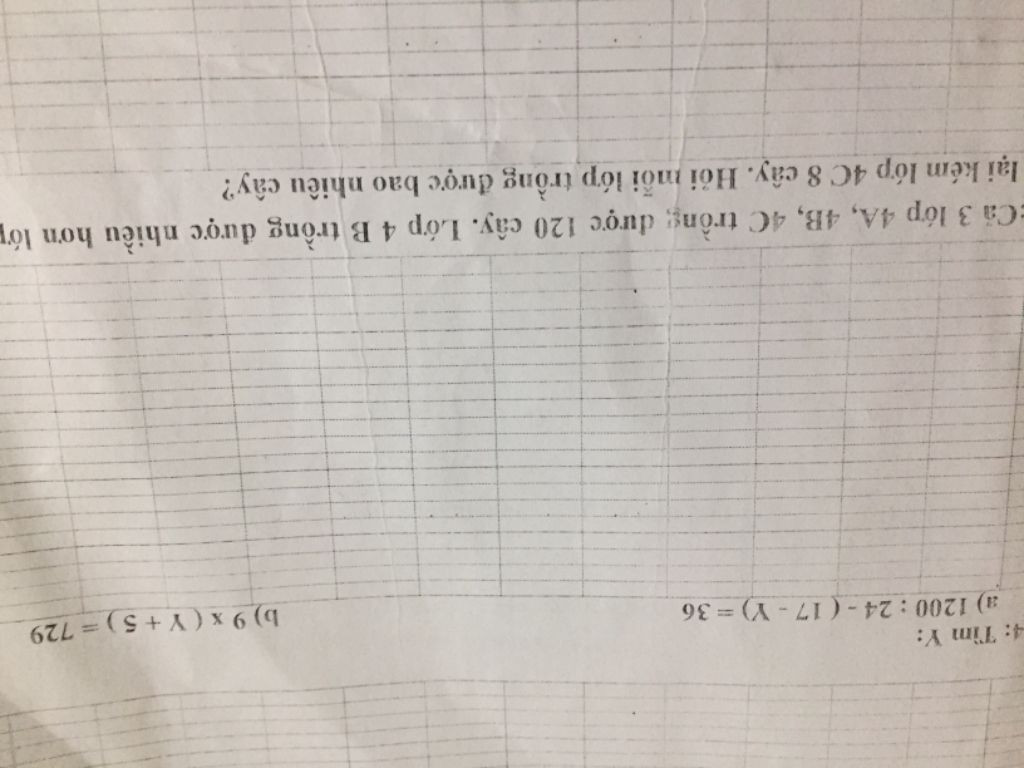 4: Tìm Y:
a) 1200 : 24 - ( 17 - Y) = 36 b) 9 x ( Y + 5 ) = 729
:Cả 3 lớp 4A, 4B, 4C trồng được 120 cây. Lớp 4 B trồng được nhiều hơn lớp
lại kém lớp 4C 8 cây. Hỏi mỗi lớp trồng được bao nhiêu cây?